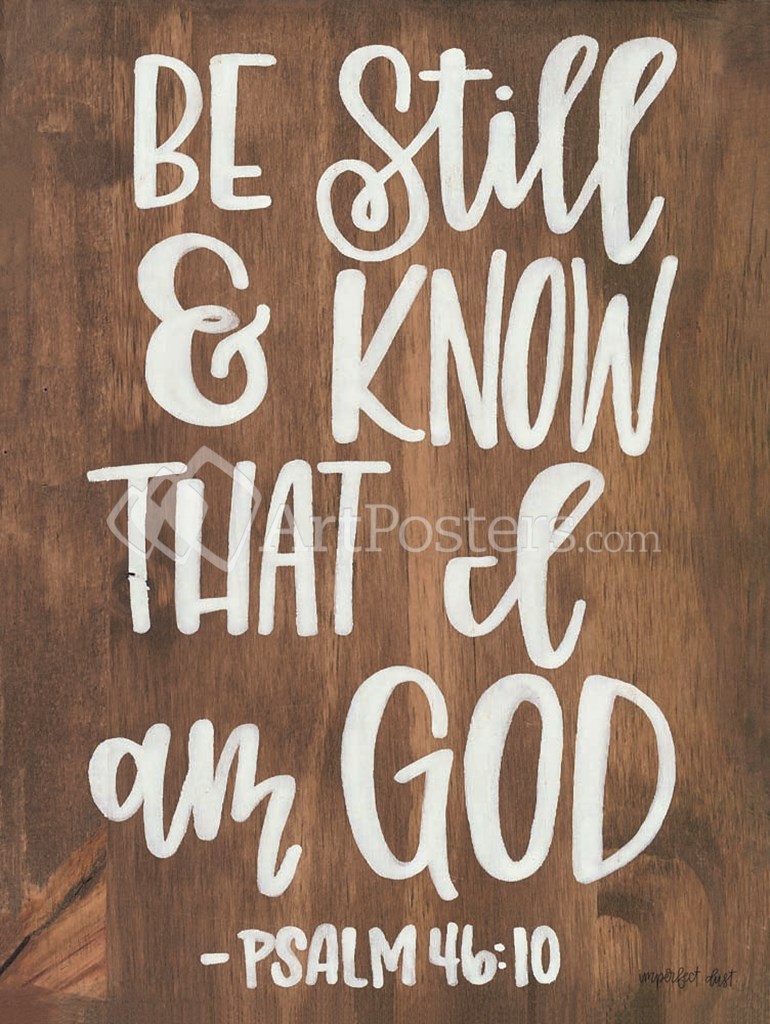 BE Still
& KNOW
THAT I
ArtPosters.com
am GOD
- PSALM 46:10
imperfect dust